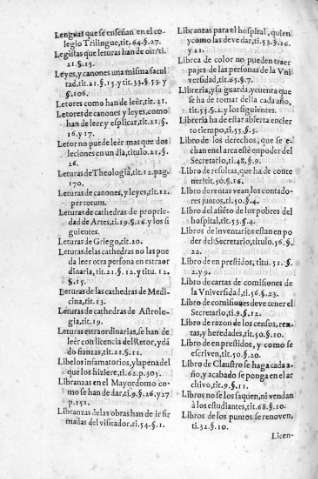 Lenguas que se enseñan en el co-
legio Trilingue, tit. 64. §. 27.
Legistas que lecturas han de oir tit.
21. §. 15.
Leyes, y canones una misma facul
tad, tit. 21. §. 15. y tit. 33. §. 59. y
§. 106.
Letores como han de leèr, tit. 21.
Letores de canones y leyes, como
han de leer y esplicar, tit. 21. §.
16. y 17.
Letor no puede leèr mas que dos
lecciones en un dia, titulo. 21. §.
26.
Leturas de Theologia, tit. 12. pag.
170.
Leturas de canones, y leyes, tit. 12.
per totum.
Leturas de cathedras de proprie-
dad de Artes, tit. 19. §. 16. y los si
guientes.
Leturas de Griego, tit. 20.
Leturas de las cathedras no las pue
da leèr otra persona en extraor
dinaria, tit. 21. §. 12. y titu. 12.
§. 15.
Leturas de las cathedras de Medi-
cina, tit. 13.
Leturas de cathedras de Astrolo-
gia, tit. 19.
Leturas extraordinarias, se han de
leèr con licencia del Retor, y dã
do fianzas, tit. 21. §. 11.
Libelos infamatorios, y la pena del
que los hiziere, tit. 62. p. 305.
Libranzas en el Mayordomo co-
mo se han de dar, ti. 9. §. 26. y 27
p. 151.
Libranzas de las obras han de ir fir
madas del visitador, ti. 54. §. 1.
Libranzas para el hospital, quien
y como las deve dar, tit. 53. §. 26.
y 21.
Librea de color no pueden traer
pajes de las personas de la Vni
versidad, tit. 65. §. 7.
Libreria, y su guarda, y cuenta que
se ha de tomar della cada año,
tit. 55. §. 2. y los siguientes.
Libreria ha de estar abierta encier
to tiempo, ti. 55. §. 5.
Libro de los derechos, que se e-
chan en el arca està en poder del
Secretario, ti. 48. §. 9.
Libro de resultas, que ha de conte
ner tit. 50. §. 16.
Libro de rentas vean los contado-
res juntos, ti. 50. §. 4.
Libro del asiẽto de los pobres del
hospital, tit. 53. §. 4.
Libros de inventarios estan en po
der del Secretario, titulo. 56. §.
22.
Libro de en prestidos, titu. 51. §.
2. y 9.
Libro de cartas de comisiones de
la Vniversidad, tit. 56. §. 23.
Libro de comisiones deve tener el
Secretario, ti. 9. §. 12.
Libro de razon de los censos, ren-
tas, y heredades, tit. 50. §. 10.
Libro de en prestidos, y como se
escriven, tit. 50. §. 20.
Libro de Claustro se haga cada a-
ño, y acabado se ponga en el ar
chivo, tit. 9. §. 11.
Libros no se los saquen, ni vendan
à los estudiantes, tit. 68. §. 10.
Libros de los puntos se renoven,
ti. 32. §. 10.
Licen-